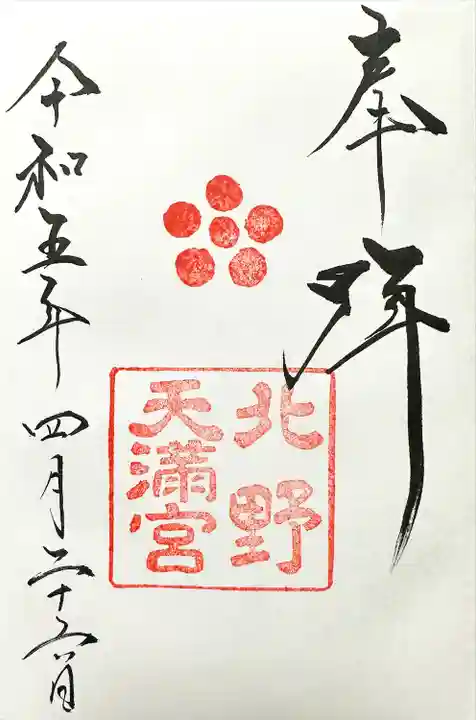 奉拝
北野
天満宮
令和五年四月二十六日